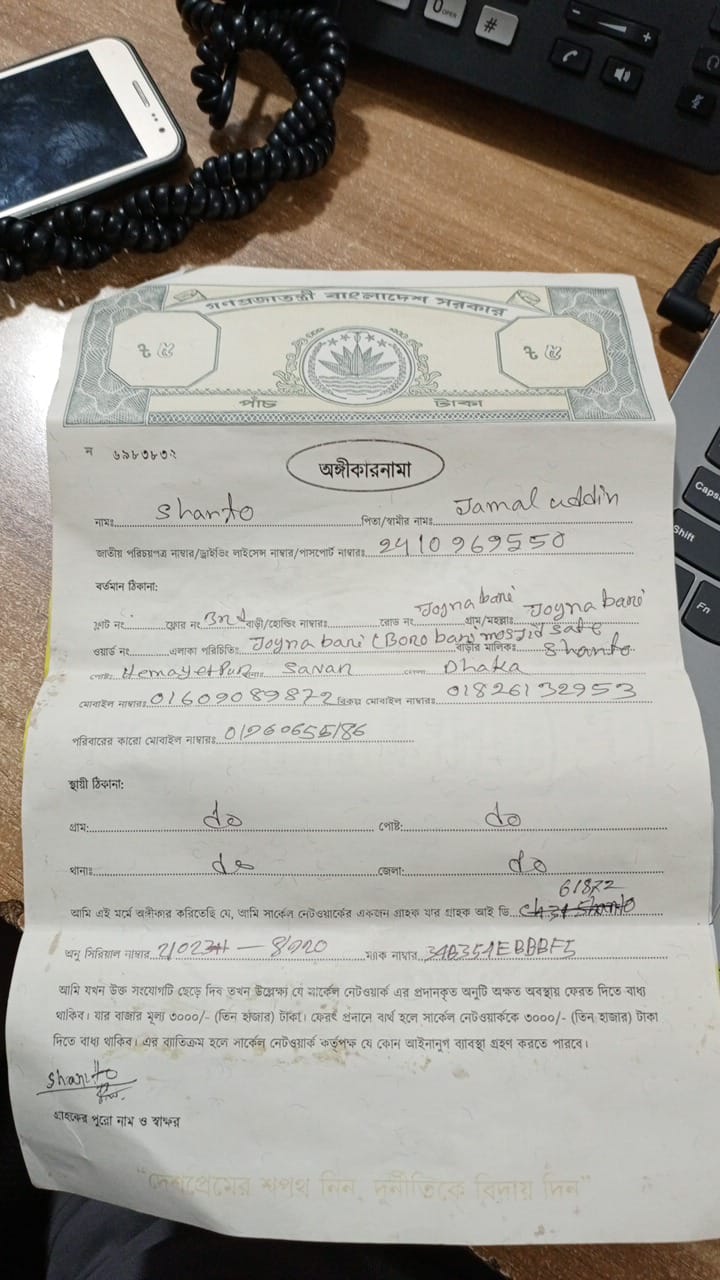 OPEN
#
Caps
Shift
Fn
গণপ্রজাতন্ত্রী বাংলাদেশ সরকার
৳ ৫
৳ ৫
পাঁচ টাকা
ন ৬৯৮৩৮৩২
অঙ্গীকারনামা
নামঃ Shanto পিতা/স্বামীর নামঃ Jamal uddin
জাতীয় পরিচয়পত্র নাম্বার/ড্রাইভিং লাইসেন্স নাম্বার/পাসপোর্ট নাম্বারঃ 2410969550
বর্তমান ঠিকানা:
ফ্লাট নং ফ্লোর নং 3rd বাড়ী/হোল্ডিং নাম্বারঃ রোড নং Joyna bari গ্রাম/মহল্লাঃ Joyna bari
ওয়ার্ড নং এলাকা পরিচিতিঃ Joyna bari (Boro bari mosjid বাড়ীর মালিকঃ Shanto
Hemayetpur Savar Dhaka
মোবাইল নাম্বারঃ 01609089872 বিকল্প মোবাইল নাম্বারঃ 01826132953
পরিবারের কারো মোবাইল নাম্বারঃ
স্থায়ী ঠিকানা:
গ্রাম: do পোষ্ট: do
থানাঃ do জেলা: do
61872
আমি এই মর্মে অঙ্গীকার করিতেছি যে, আমি সার্কেল নেটওয়ার্কের একজন গ্রাহক যার গ্রাহক আই ডি
অনু সিরিয়াল নাম্বার ম্যাক নাম্বার
আমি যখন উক্ত সংযোগটি ছেড়ে দিব তখন উল্লেক্ষ্য যে সার্কেল নেটওয়ার্ক এর প্রদানকৃত অনুটি অক্ষত অবস্থায় ফেরত দিতে বাধ্য
থাকিব। যার বাজার মূল্য ৩০০০/- (তিন হাজার) টাকা। ফেরৎ প্রদানে ব্যর্থ হলে সার্কেল নেটওয়ার্ককে ৩০০০/- (তিন হাজার) টাকা
দিতে বাধ্য থাকিব। এর ব্যতিক্রম হলে সার্কেল নেটওয়ার্ক কর্তৃপক্ষ যে কোন আইনানুগ ব্যবস্থা গ্রহণ করতে পারবে।
Shanto
গ্রাহকের পুরো নাম ও স্বাক্ষর
"দেশপ্রেমের শপথ নিন, দুর্নীতিকে বিদায় দিন"